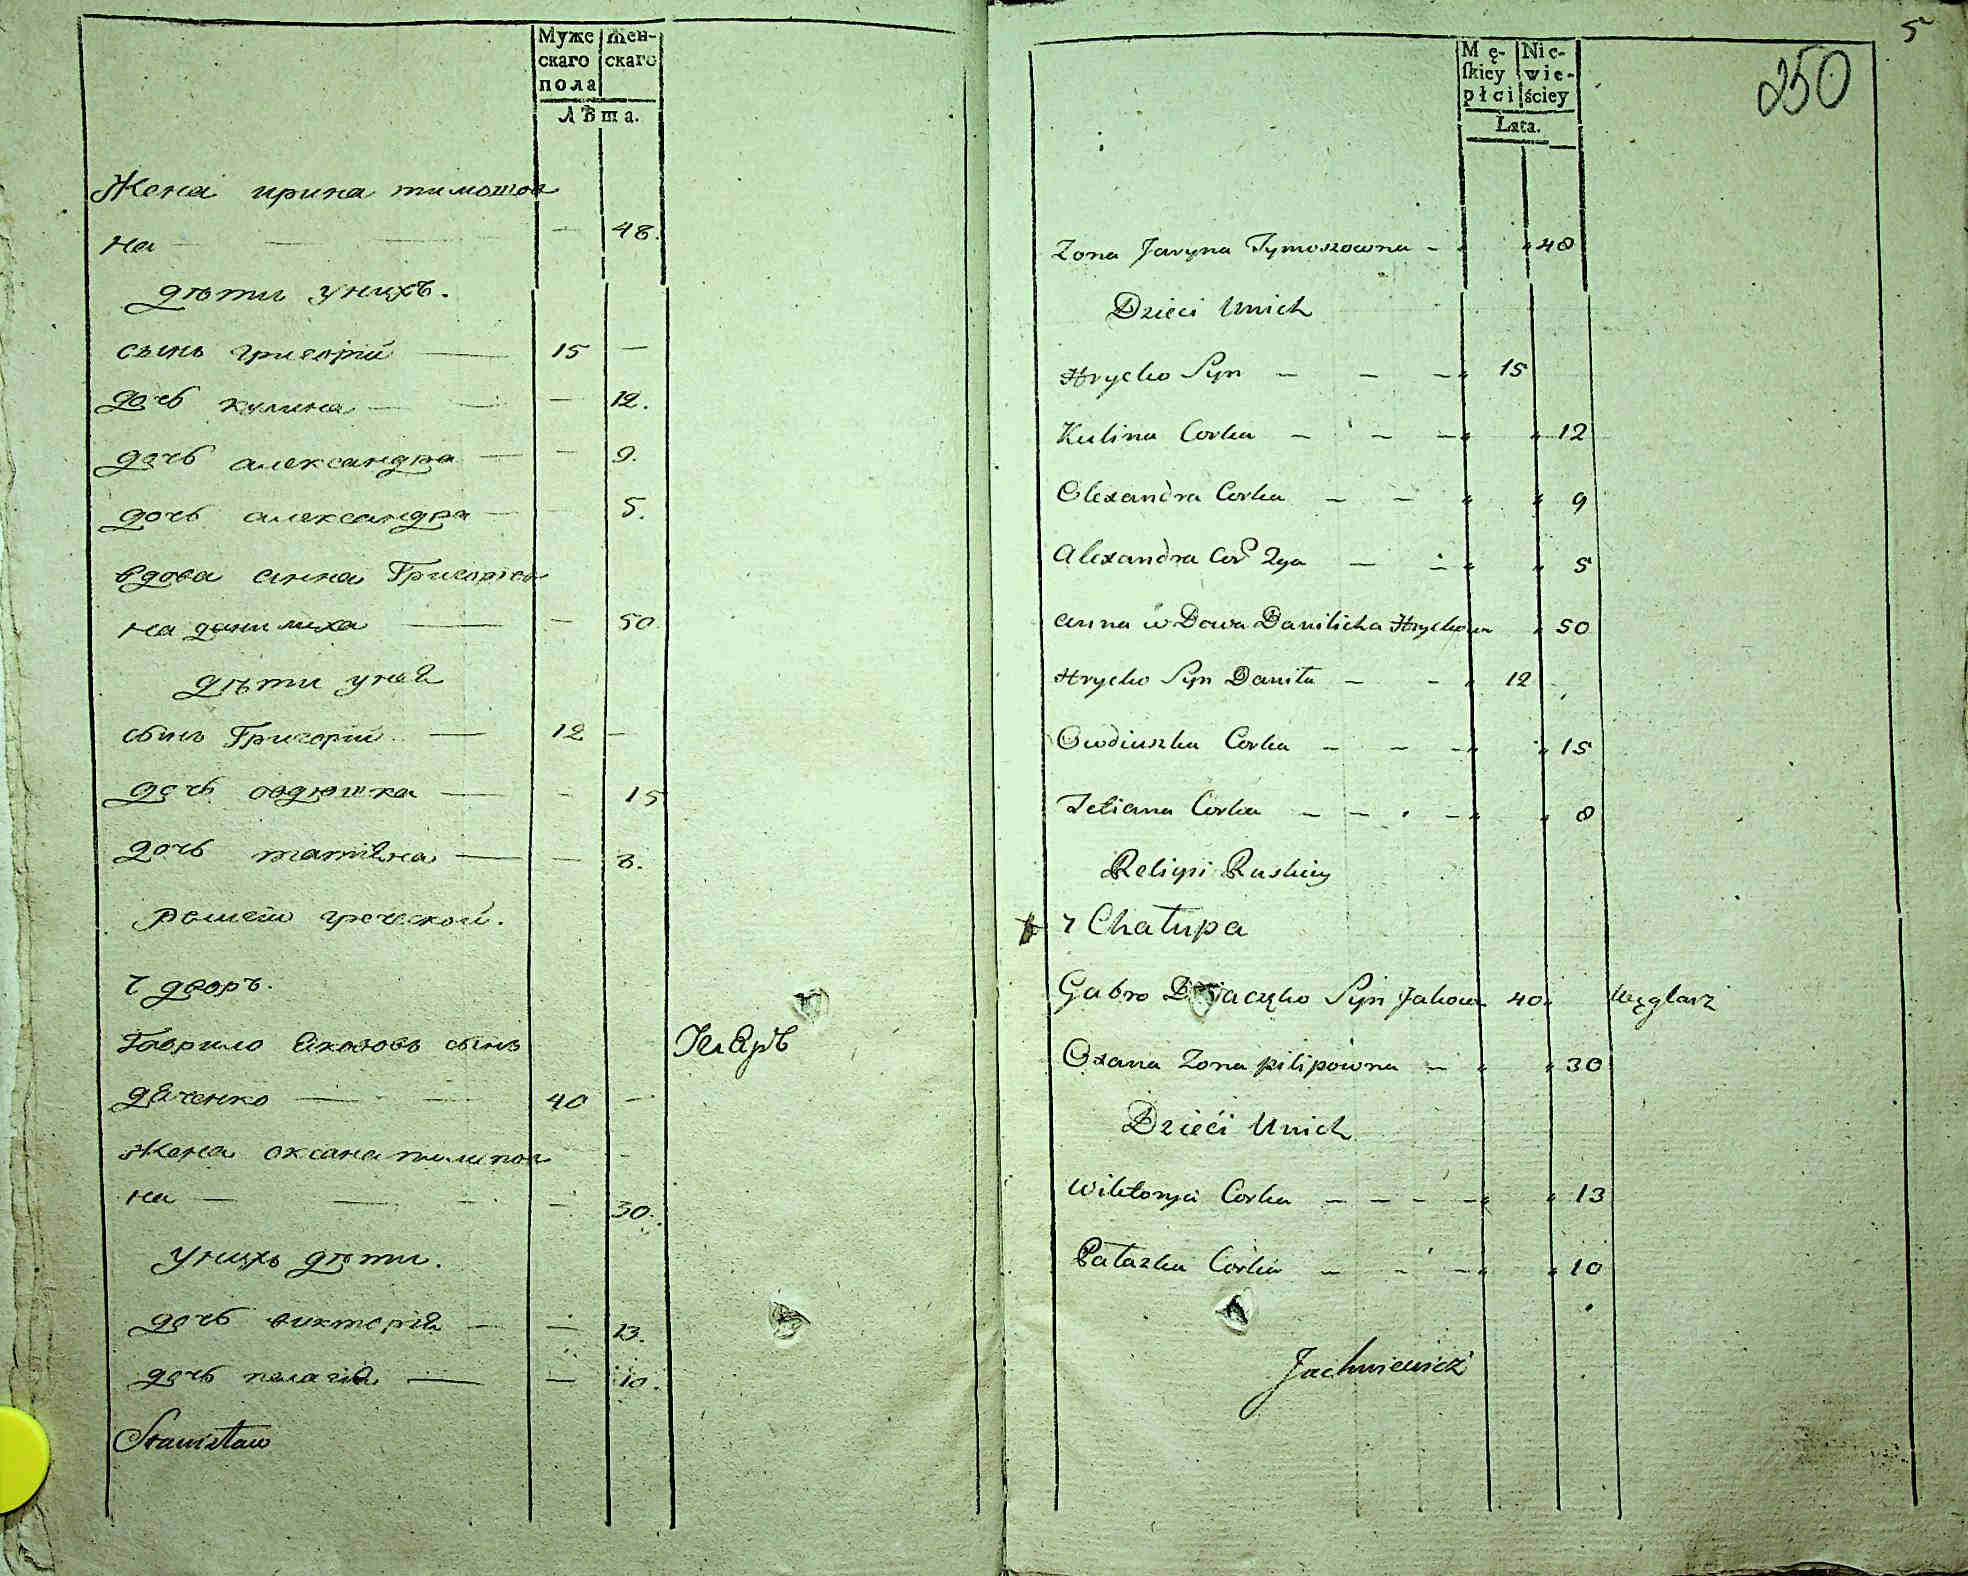 Муже
скаго
пола
Жен-
скаго
Лѣта.
Жена ирина тимошов
на — 48.
дѣти унихъ.
сынъ григорiй — 15 —
дочь кулина — — 12.
дочь александра — — 9.
дочь александра — — 5.
вдова анна Григорьев
на данилиха — — 50
дѣти уней
сынъ Григорiй — 12 —
дочь овдюшка — — 15
дочь татiяна — — 8.
греческой.
7 дворъ.
Гаврило Яковъ сынъ
дяченко — 40 —
Жена оксана пилипов
на — — 30.
Унихъ дѣти.
дочь викторiя — — 13.
дочь пелагiя — — 10.
Stanisław
5
250
Mę-
ſkiey
płci
Nie-
wie-
ściey
Lata.
Zona Jaryna Tymoszowna - 48
Dzieci Unich
Hrycko Syn — — — 15
Kulina Corka — — — 12
Olexandra Corka — — 9
Alexandra Cor 2ga — — 5
Anna wDowa Danilicha Hryckow 50
Hrycko Syn Daniła — - 12
Owdiuszka Corka — — — 15
Tetiana Corka — — — 8
Religii Ruskiey
7 Chałupa
Gabro Dziaczęko Syn Jakow 40 Węglarz
Oxana Zona pilipowna — 30
Dzieći Unich
Wiktorya Corka — — — 13
Pałazka Corka — — — 10
Jachniewicz